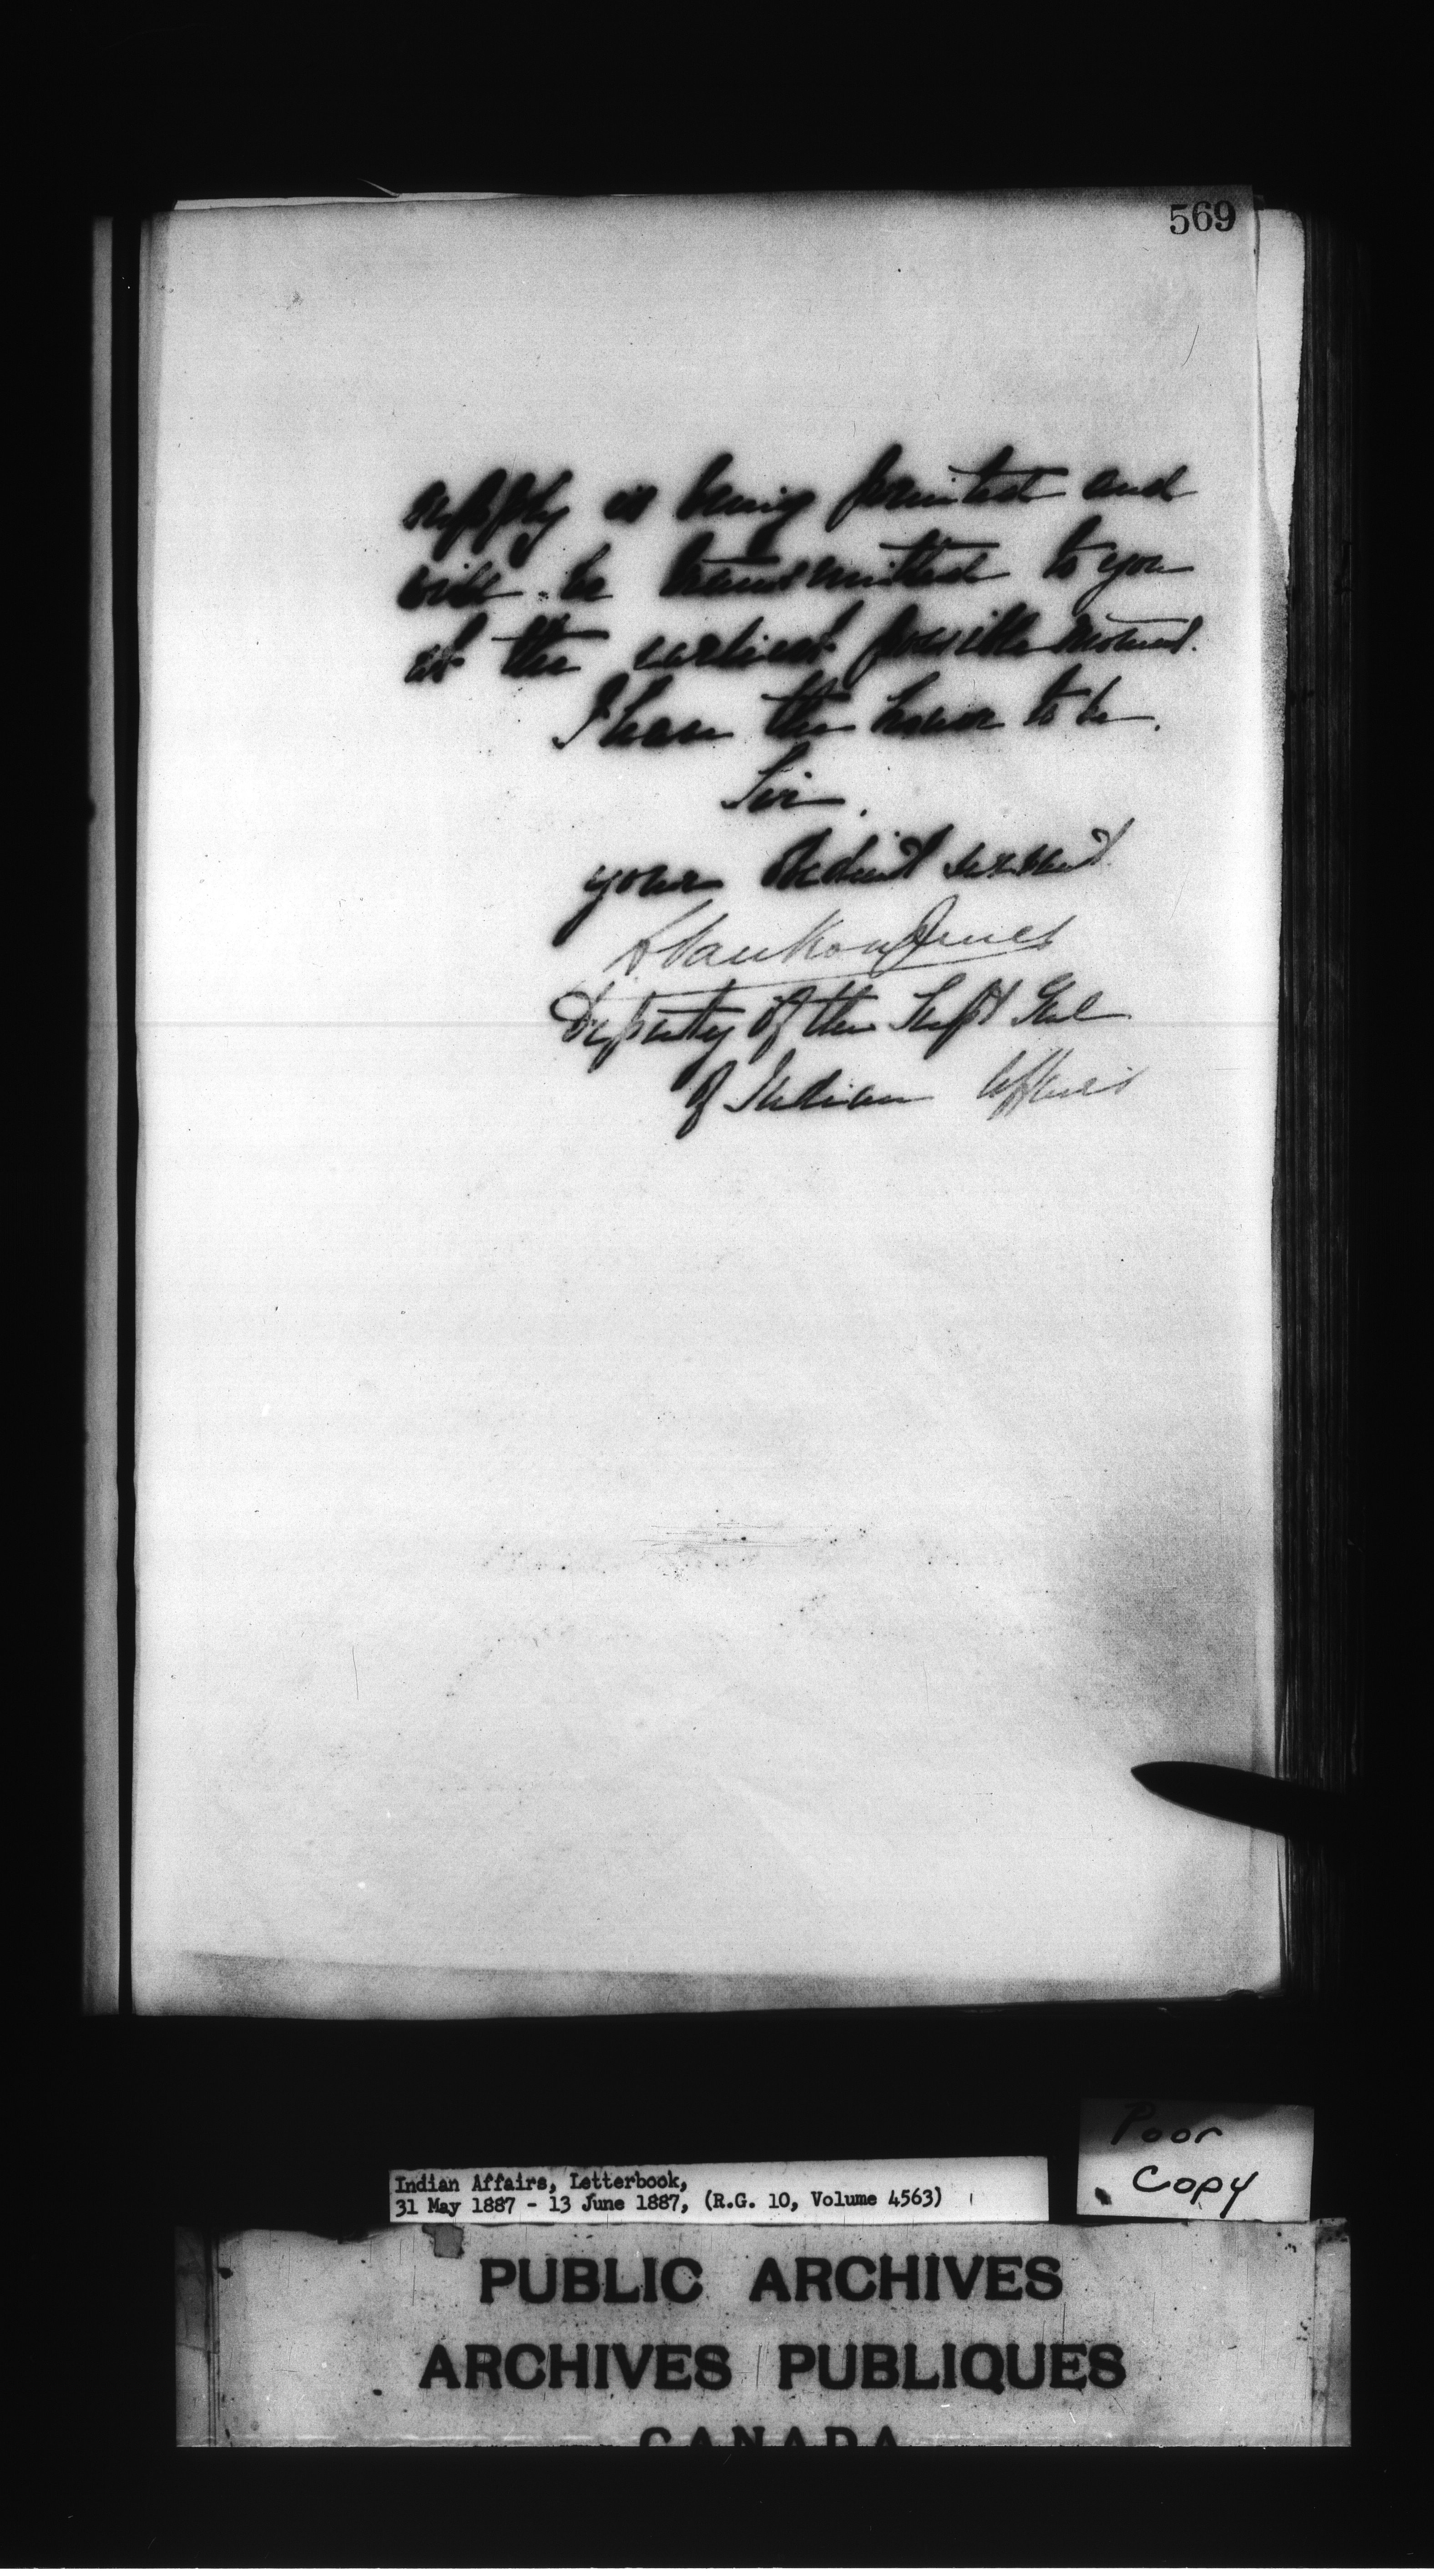 569
supply is being printed and
will be transmitted to you
at the earliest possible moment.
I have the honor to be,
Sir,
your obedient servant
L VanKoughnet
Deputy of the Supt Genl
of Indian Affairs
Poor
Copy
Indian Affairs, Letterbook,
31 May 1887 - 13 June 1887, (R.G. 10, Volume 4563)
PUBLIC ARCHIVES
ARCHIVES PUBLIQUES
CANADA